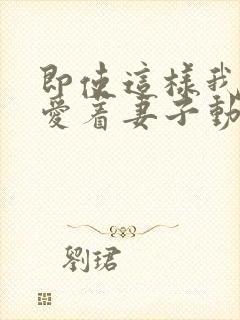 即使這樣我
愛着妻子動
劉珺